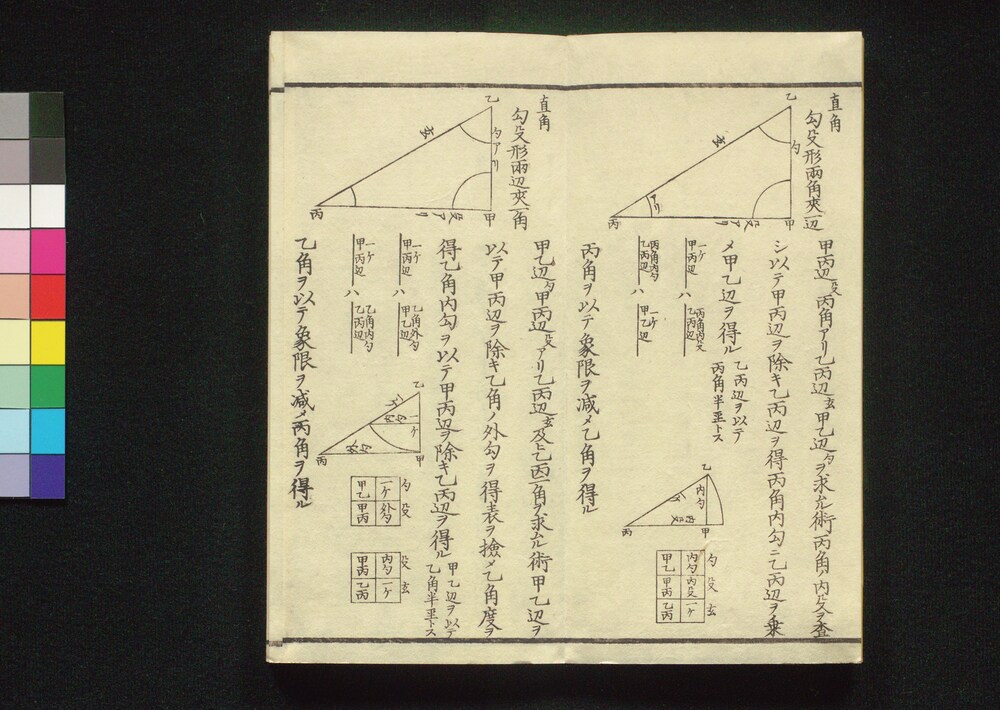 直角
勾殳形兩角夾一辺
乙
勾
玄
甲
殳アリ
アリ
丙
甲丙辺殳丙角アリ乙丙辺玄甲乙辺勾ヲ求ムル術丙角ノ内殳ヲ査
シ以テ甲丙辺ヲ除キ乙丙辺ヲ得丙角内勾ニ乙丙辺ヲ乗
メ甲乙辺ヲ得ル
乙丙辺ヲ以テ
丙角半径トス
一ケ
甲丙辺
ハ
丙角内殳
乙丙辺
丙角内勾
乙丙辺
ハ
一ケ
甲乙辺
丙角ヲ以テ象限ヲ减メ乙角ヲ得ル
乙
内勾
一ケ
内殳
甲
丙
勾
殳
玄
内勾
内殳
一ケ
甲乙
甲丙
乙丙
直角
勾殳形兩辺夾一角
乙
勾アリ
玄
甲
殳アリ
丙
甲乙辺勾甲丙辺殳アリ乙丙辺玄及ヒ乙丙二角ヲ求ムル術甲乙辺ヲ
以テ甲丙辺ヲ除キ乙角ノ外勾ヲ得表ヲ撿メ乙角度ヲ
得乙角内勾ヲ以テ甲丙辺ヲ除キ乙丙辺ヲ得ル
甲乙辺ヲ以テ
乙角半径トス
一ケ
甲丙辺
ハ
乙角外勾
甲乙辺
一ケ
甲丙辺
ハ
乙角内勾
乙丙辺
乙角ヲ以テ象限ヲ减メ丙角ヲ得ル
乙
一ケ
一ケ
内勾
外勾
甲
丙
勾
殳
一ケ
外勾
甲乙
甲丙
殳
玄
内勾
一ケ
甲丙
乙丙